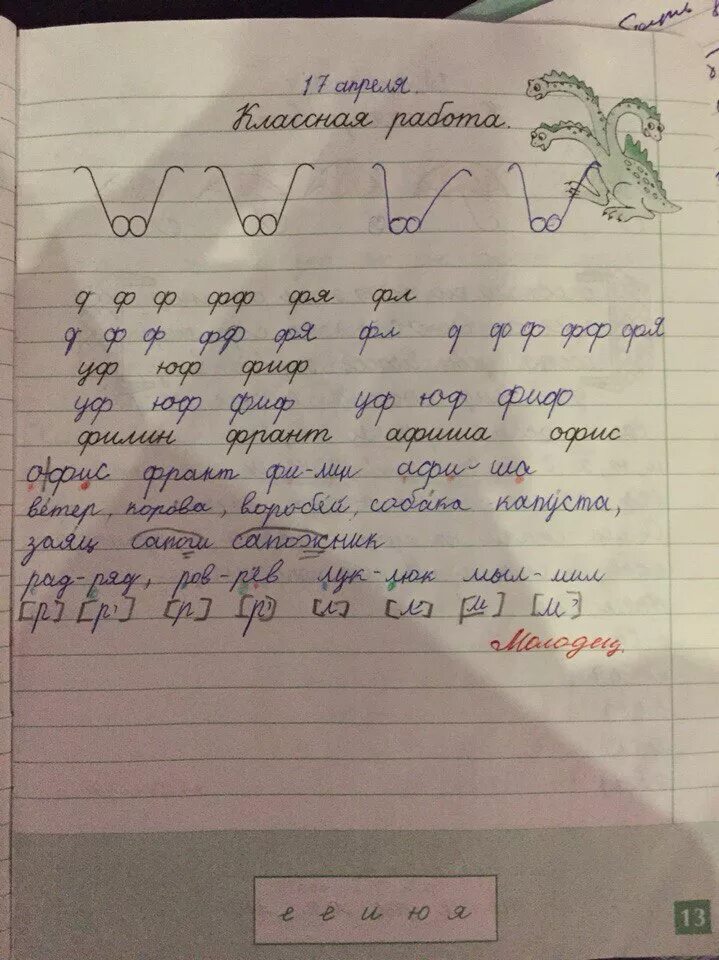 17 апреля.
Классная работа.
ф ф ф фф фя фл
ф ф ф фф фя фл ф ф ф фф фя
уф юф фиф
уф юф фиф уф юф фиф
филин франт афиша офис
офис франт фи-лин афи-ша
ветер, корова, воробей, собака капуста,
заяц сапоги сапожник
рад-ряд, ров-рёв лук-люк мыл-мил
[р] [р'] [р] [р'] [л] [л'] [м] [м']
Молодец
е ё и ю я
13